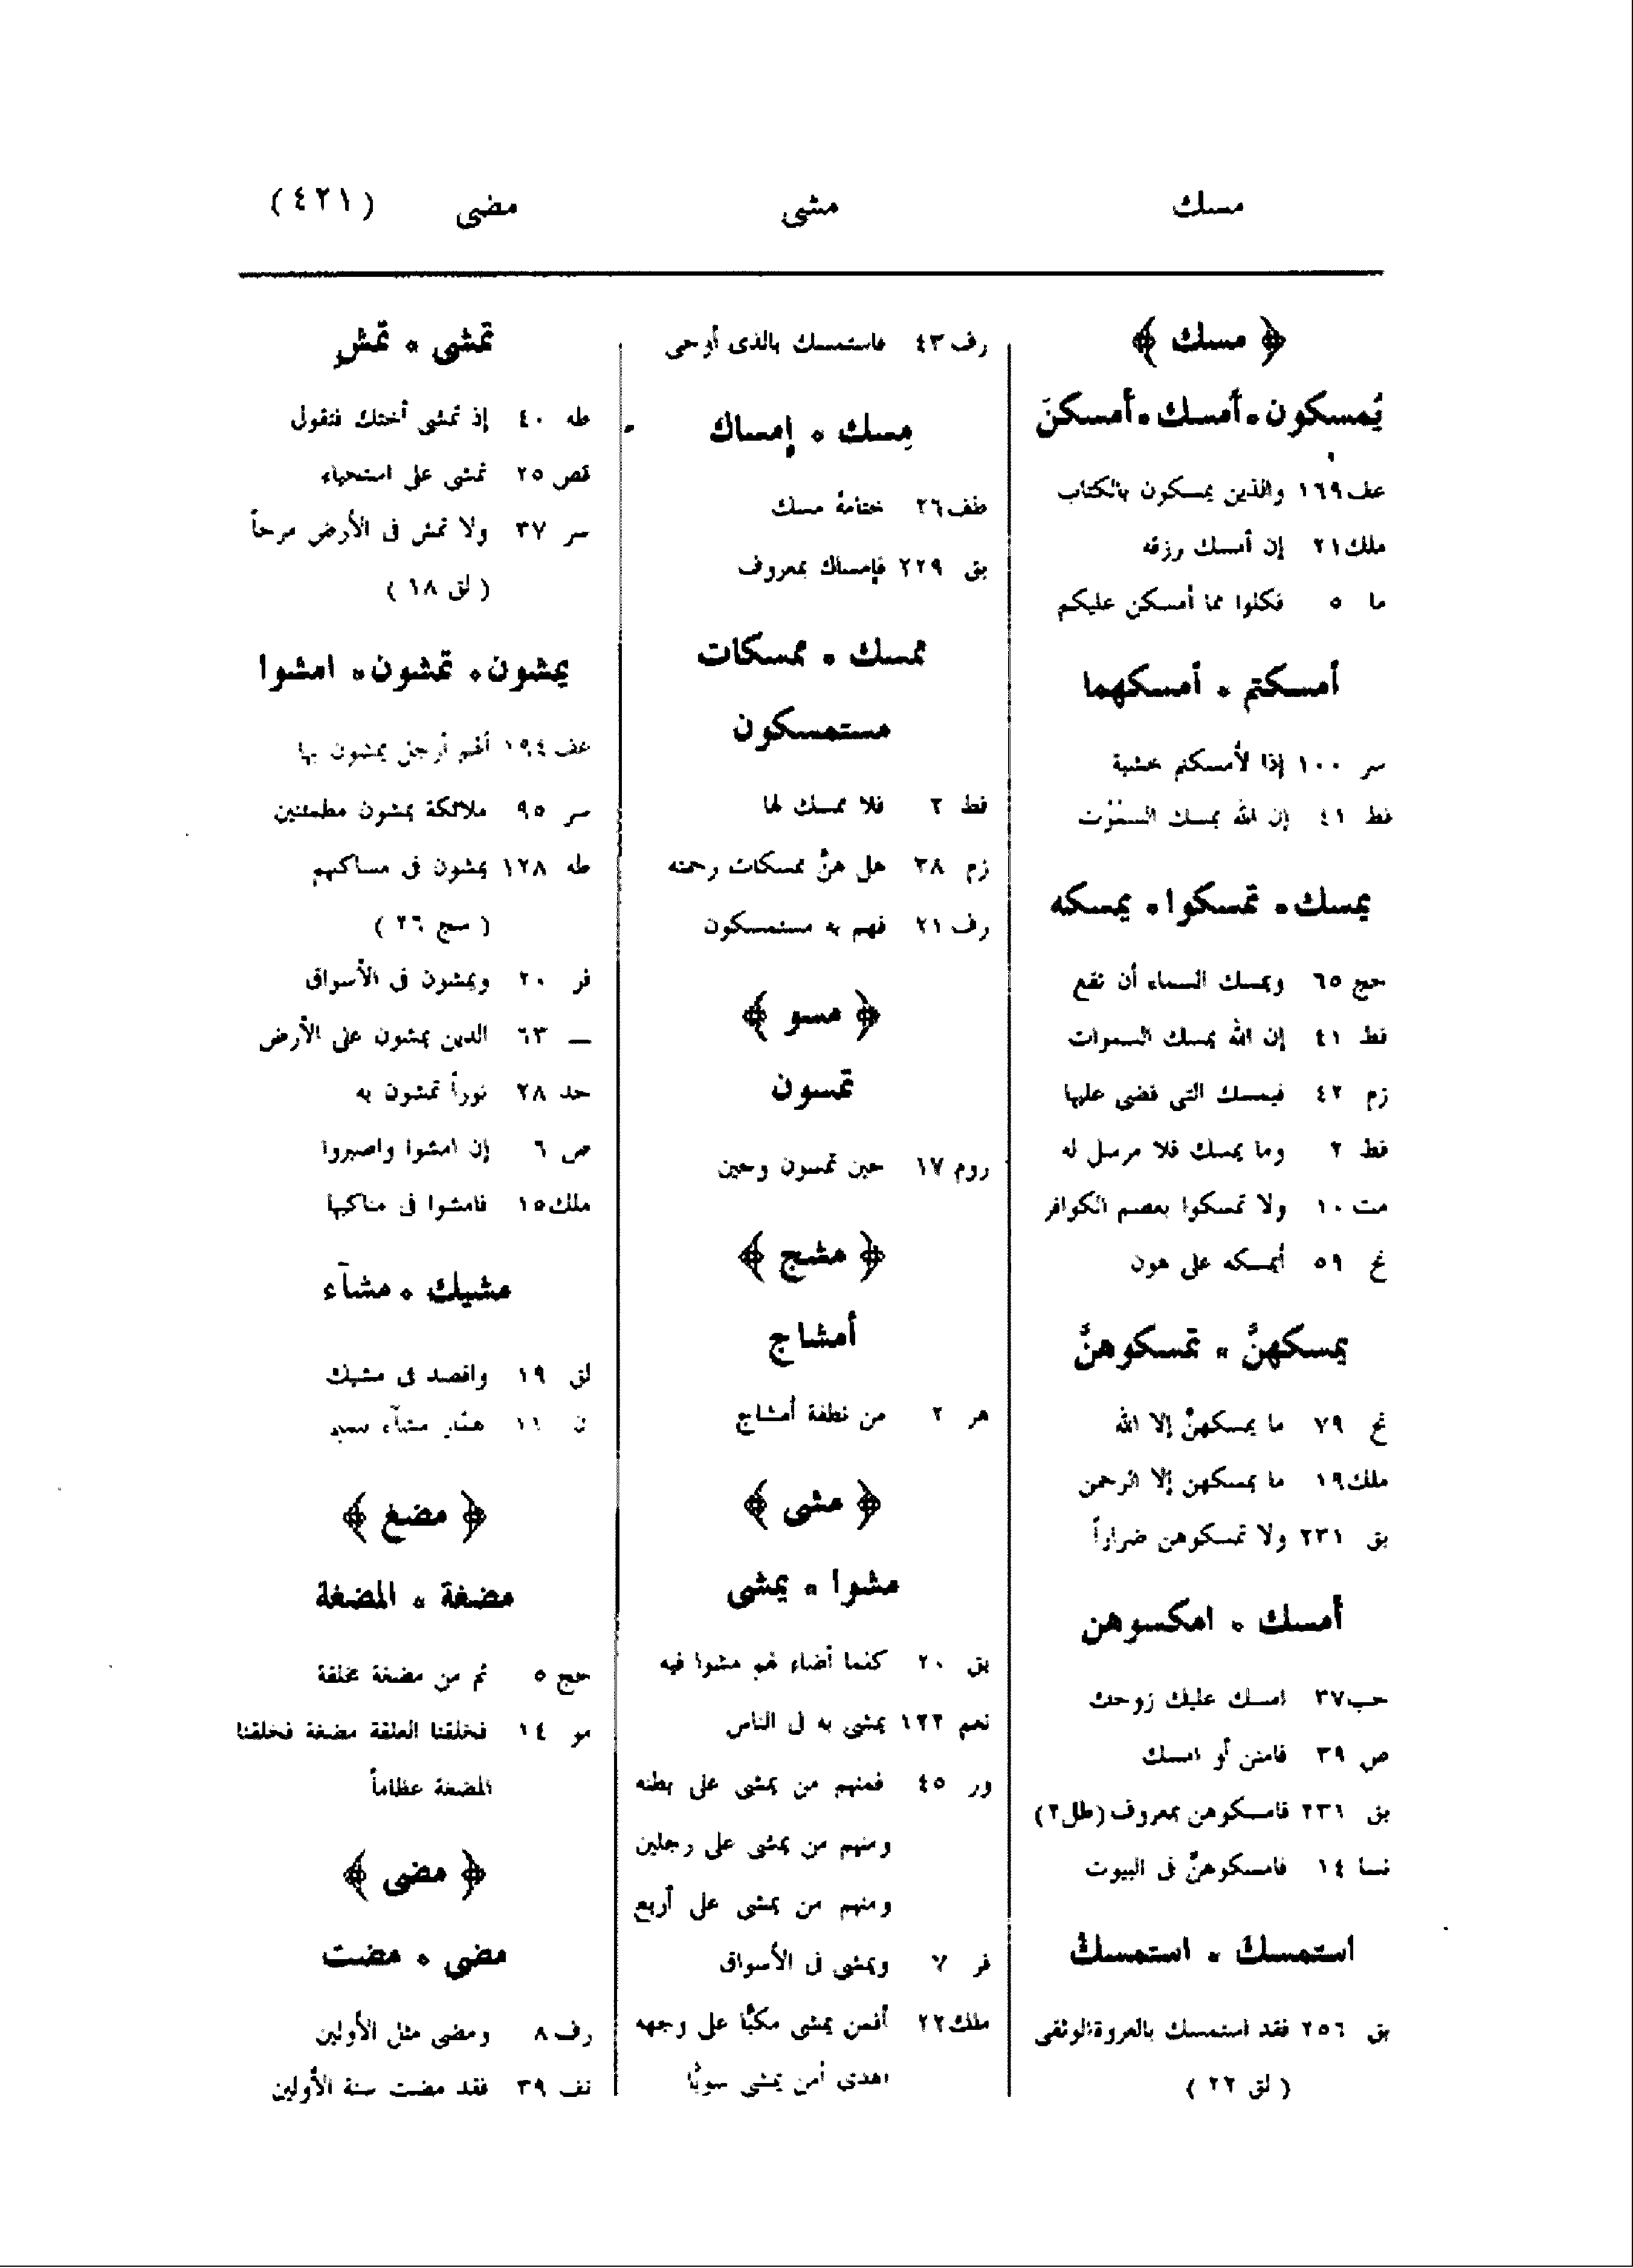 مسك
مشى
مضى
(٤٢١)
﴿ مسك ﴾
يُمسكون ٠ أمسك ٠ أمسكنَ
عف ١٦٩ والذين يمسكون بالكتاب
ملك ٢١ إن أمسك رزقه
ما ٥ فكلوا مما أمسكن عليكم
أمسكتم ٠ أمسكهما
سر ١٠٠ إذا لأمسكتم خشية
فط ٤١ إن الله يمسك السمٰوٰت
يمسك ٠ تمسكوا ٠ يمسكه
حج ٦٥ ويمسك السماء أن تقع
فط ٤١ إن الله يمسك السموات
زم ٤٢ فيمسك التى قضى عليها
فط ٢ وما يمسك فلا مرسل له
مت ١٠ ولا تمسكوا بعصم الكوافر
نح ٥٩ أيمسكه على هون
يمسكهنَّ ٠ تمسكوهنَّ
نح ٧٩ ما يمسكهنَّ إلا الله
ملك ١٩ ما يمسكهن إلا الرحمن
بق ٢٣١ ولا تمسكوهن ضراراً
أمسك ٠ امكسوهن
حب ٣٧ امسك عليك زوجك
ص ٣٩ فامنن أو امسك
بق ٢٣١ فامسكوهن بمعروف (طل ٢)
نسا ١٤ فامسكوهنَّ فى البيوت
استمسك ٠ استمسكْ
بق ٢٥٦ فقد استمسك بالعروة الوثقى
( لق ٢٢ )
رف ٤٣ فاستمسك بالذى أوحى
مِسك ٠ إمساك
طف ٢٦ ختامهُ مسك
بق ٢٢٩ فإمساك بمعروف
ممسك ٠ ممسكات
مستمسكون
فط ٢ فلا ممسك لها
زم ٣٨ هل هنَّ ممسكات رحمته
رف ٢١ فهم به مستمسكون
﴿ مسو ﴾
تمسون
روم ١٧ حين تمسون وحين
﴿ مشج ﴾
أمشاج
هر ٢ من نطفة أمشاج
﴿ مشى ﴾
مشوا ٠ يمشى
بق ٢٠ كلما أضاء لهم مشوا فيه
نعم ١٢٢ يمشى به فى الناس
ور ٤٥ فمنهم من يمشى على بطنه
ومنهم من يمشى على رجلين
ومنهم من يمشى على أربع
فر ٧ ويمشى فى الأسواق
ملك ٢٢ أفمن يمشى مكبًّا على وجهه
اهدى أمن يمشى سويًّا
تمشى ٠ تمشِ
طه ٤٠ إذ تمشى أختك فتقول
قص ٢٥ تمشى على استحياء
سر ٣٧ ولا تمش فى الأرض مرحاً
( لق ١٨ )
يمشون ٠ تمشون ٠ امشوا
عف ١٩٤ ألهم أرجل يمشون بها
سر ٩٥ ملائكة يمشون مطمئنين
طه ١٢٨ يمشون فى مساكنهم
( سج ٢٦ )
فر ٢٠ ويمشون فى الأسواق
— ٦٣ الذين يمشون على الأرض
حد ٢٨ نوراً تمشون به
ص ٦ إن امشوا واصبروا
ملك ١٥ فامشوا فى مناكبها
مشيك ٠ مشآء
لق ١٩ واقصد فى مشيك
ن ١١ همَّاز مشآء بنميم
﴿ مضغ ﴾
مضغة ٠ المضغة
حج ٥ ثم من مضغة مخلقة
مو ١٤ فخلقنا العلقة مضغة فخلقنا
المضغة عظاماً
﴿ مضى ﴾
مضى ٠ مضت
رف ٨ ومضى مثل الأولين
نف ٣٩ فقد مضت سنة الأولين